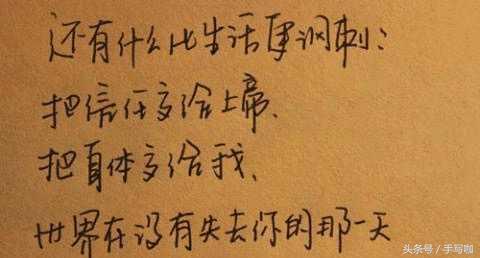 还有什么比生活更讽刺:
把信任交给上帝.
把身体交给我.
世界在没有失去你的那一天
头条号 / 手写咖